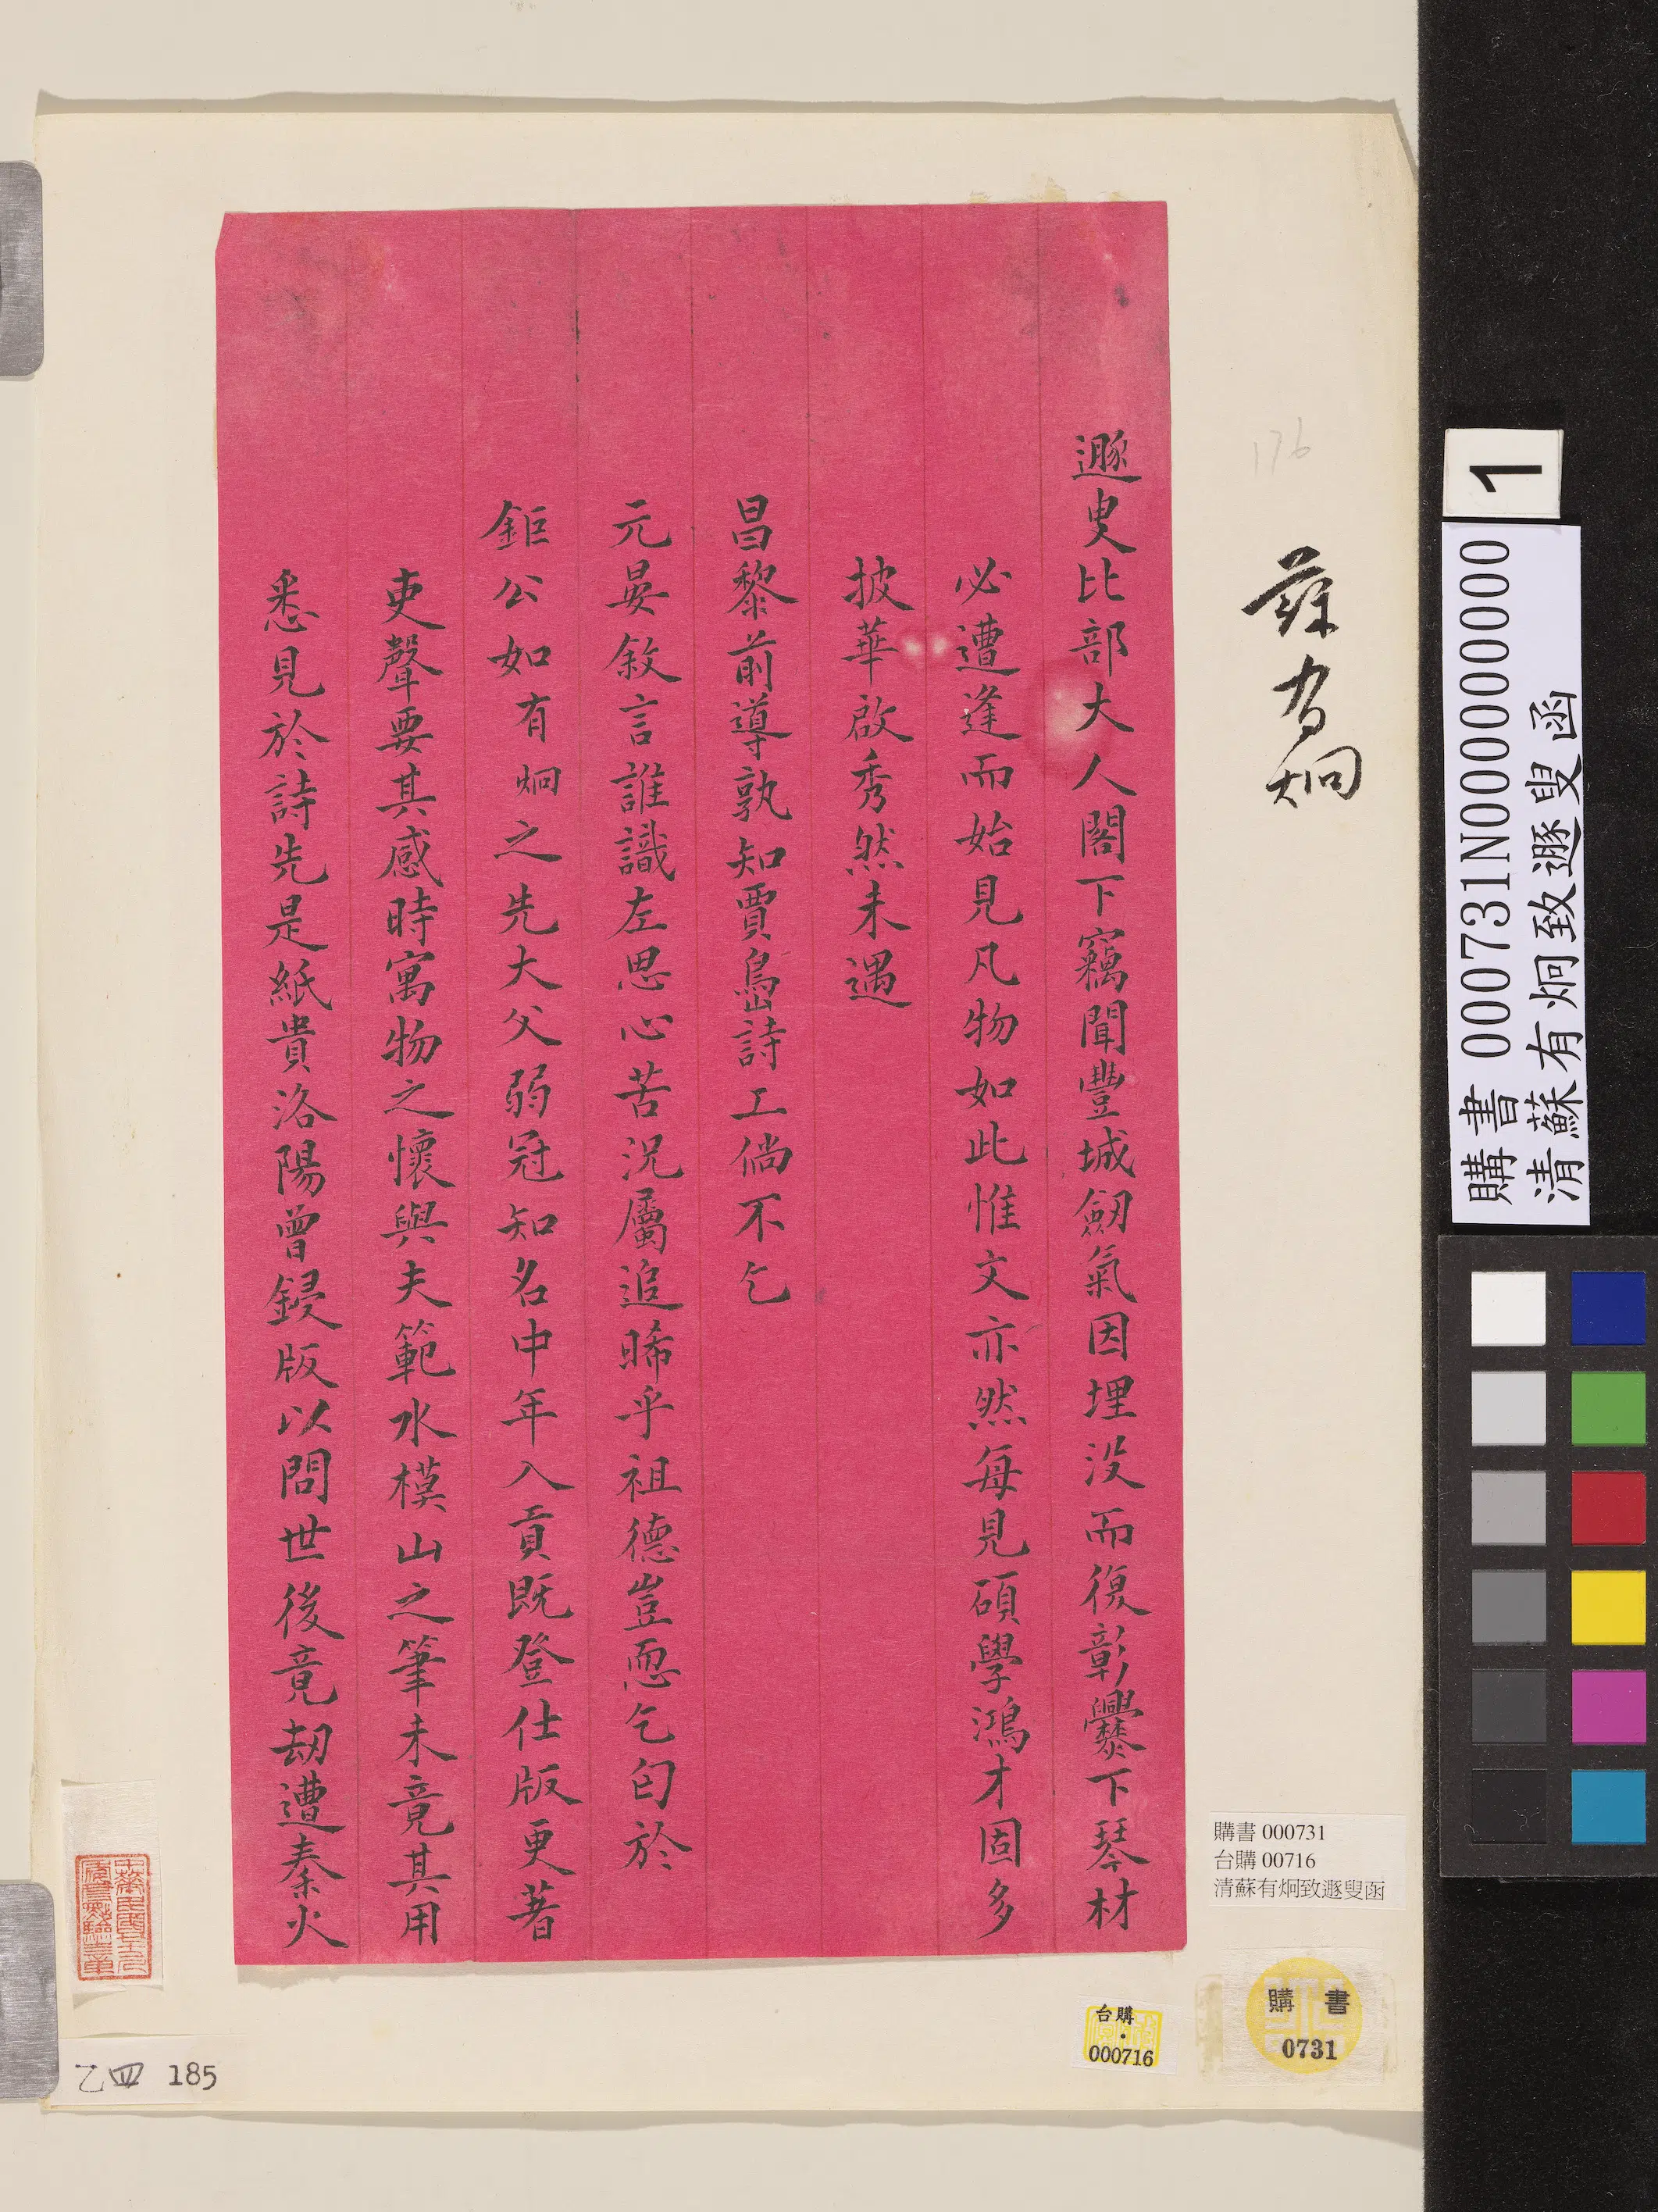 遯叟比部大人閣下竊聞豐城劒氣因埋没而復彰爨下琴材
必遭逢而始見凡物如此惟文亦然每見碩學鴻才固多
披華啟秀然未遇
昌黎前導孰知賈島詩工倘不乞
元晏敘言誰識左思心苦況屬追晞乎祖德豈恧乞匄於
鉅公如有炯之先大父弱冠知名中年入貢既登仕版更著
吏聲要其感時寓物之懷與夫範水模山之筆未竟其用
悉見於詩先是紙貴洛陽曾鋟版以問世後竟劫遭秦火
蘇有炯
176
購書 000731
台購 00716
清蘇有炯致遯叟函
購書
0731
台購
000716
乙四 185
1
購書 000731N000000000
清蘇有炯致遯叟函